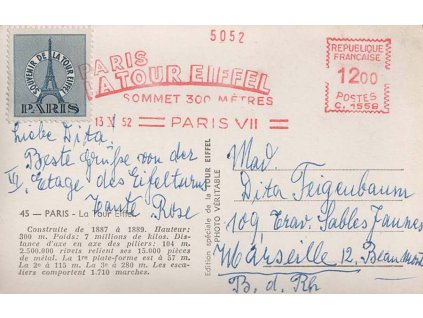 5052
SOUVENIR DE LA TOUR EIFFEL
PARIS
PARIS
LA TOUR EIFFEL
SOMMET 300 MÈTRES
13 V 52
PARIS VII
REPUBLIQUE
FRANCAISE
1200
POSTES
C. 1559
Liebe Dita!
Beste Grüße von der
III. Etage des Eifelturm
Tante Rose
45 — PARIS - La Tour Eiffel
Construite de 1887 à 1889. Hauteur:
300 m. Poids: 7 millions de kilos. Dis-
tance d'axe en axe des piliers: 104 m.
2.500.000 rivets relient ses 15.000 pièces
de métal. La 1re plate-forme est à 57 m.
La 2e à 115 m. La 3e à 280 m. Les esca-
liers comportent 1.710 marches.
Edition spéciale de la TOUR EIFFEL
PHOTO VÉRITABLE
Mad.
Dita Feigenbaum
109 Trav. Sables Jaunes
Marseille 12, Beaumont
B. d. Rh